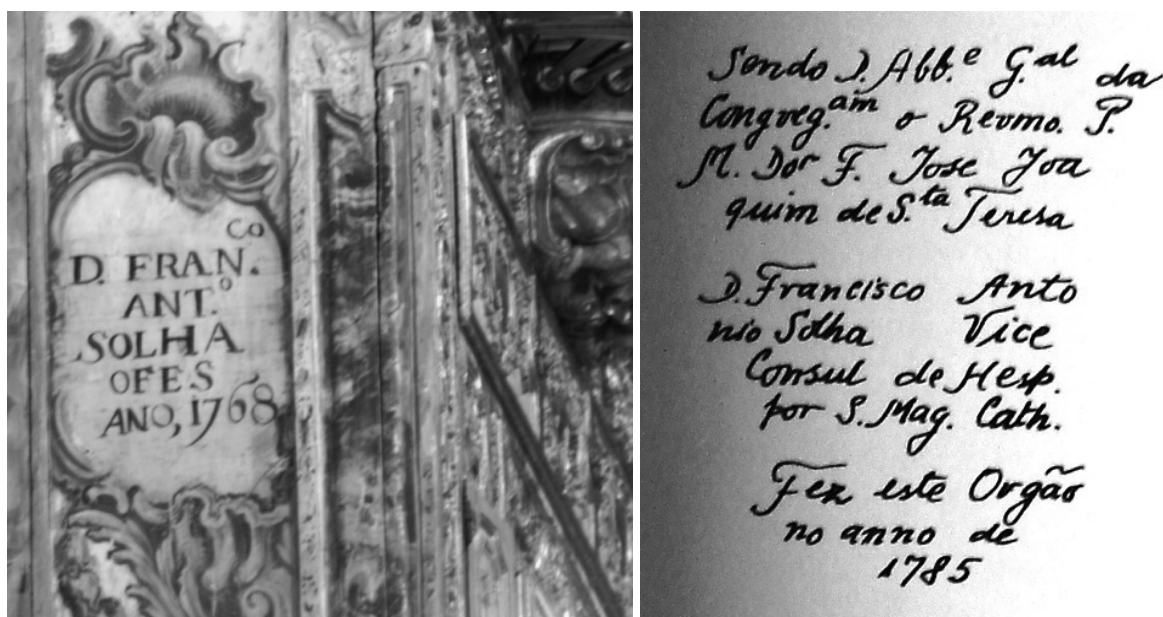 D. FRAN.co
ANT.o
SOLHA
OFES
ANO, 1768
Sendo D. Abb.e G.al da
Congreg.am o Revmo. P.
M. Dor F. Jose Joa
quim de S.ta Teresa
D. Francisco Anto
nio Solha Vice
Consul de Hesp.
por S. Mag. Cath.
Fez este Orgão
no anno de
1785